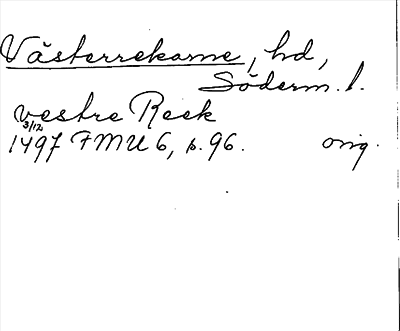 Västerrekarne, hd,
Söderm. l.
vestre Reck
3/12
1497 FMU 6, s. 96. orig.